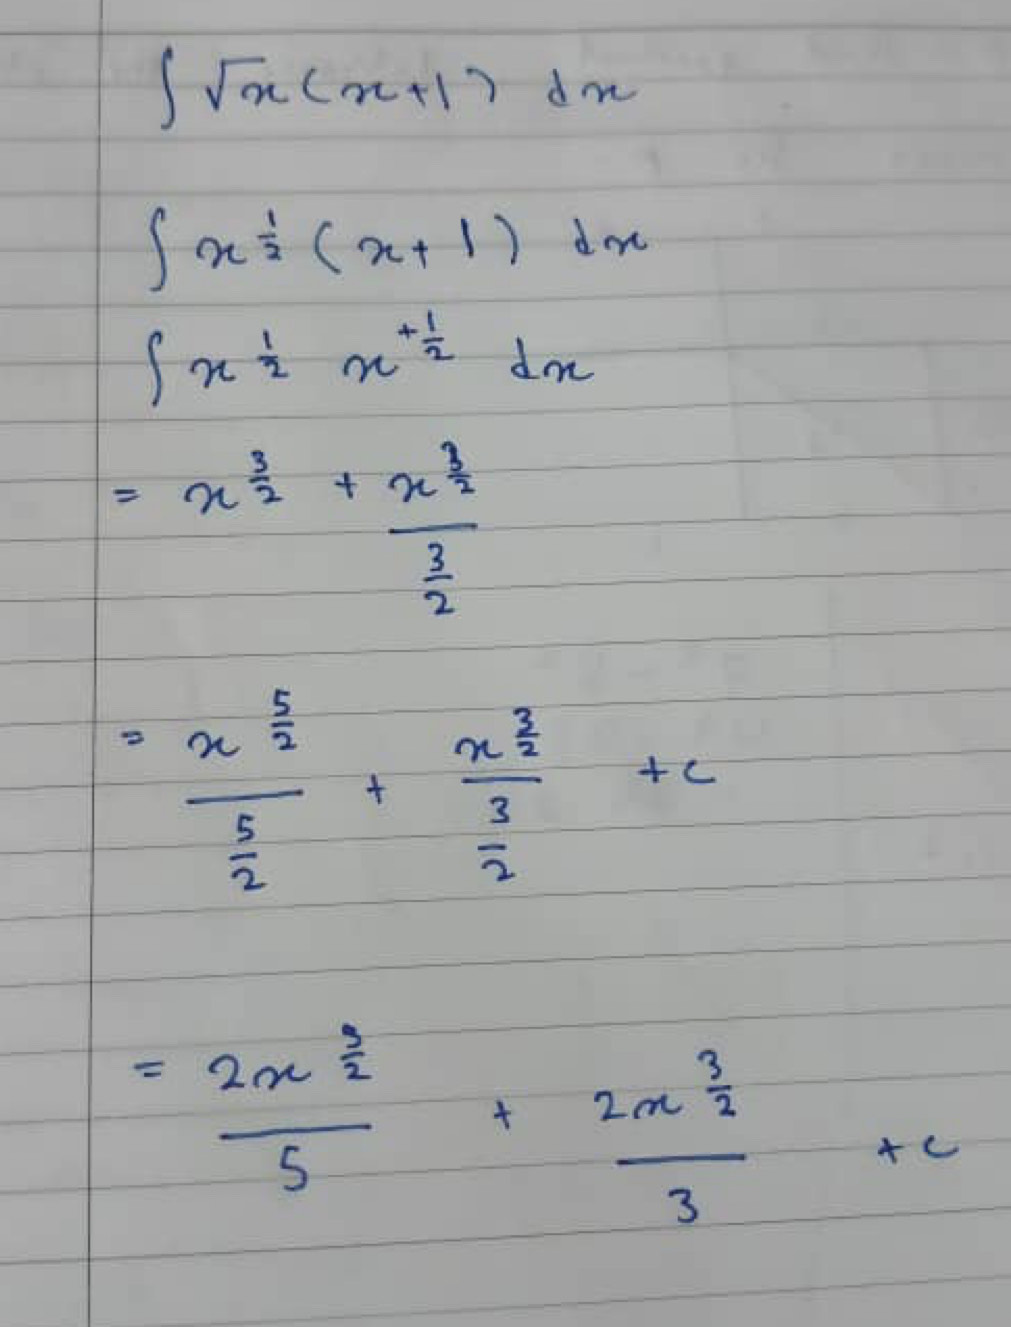 ∫ √x (x+1) dx
∫ x^{1/2} (x+1) dx
∫ x^{1/2} x^{+1/2} dx
= x^{3/2} + x^{3/2} / (3/2)
= x^{5/2} / (5/2) + x^{3/2} / (3/2) + c
= 2x^{5/2} / 5 + 2x^{3/2} / 3 + c